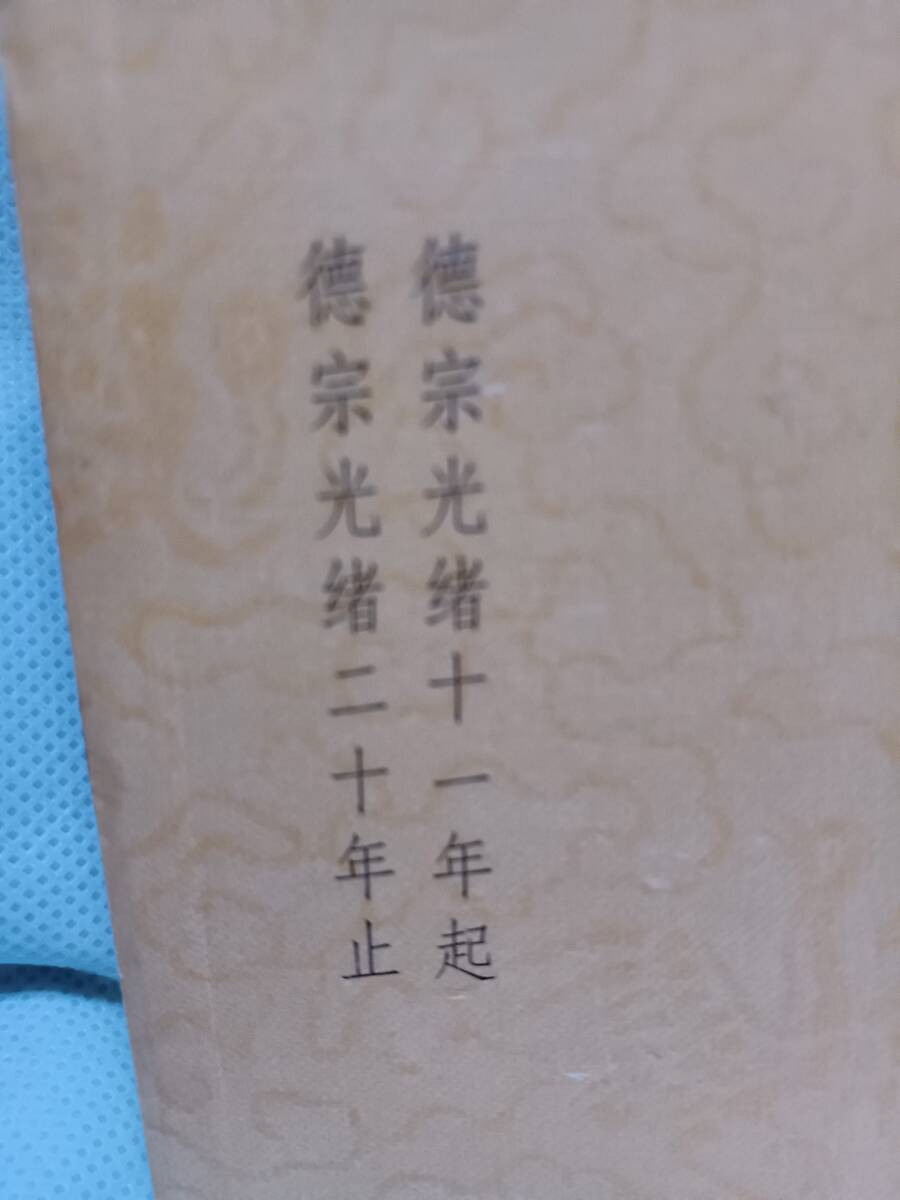 德宗光绪十一年起
德宗光绪二十年止